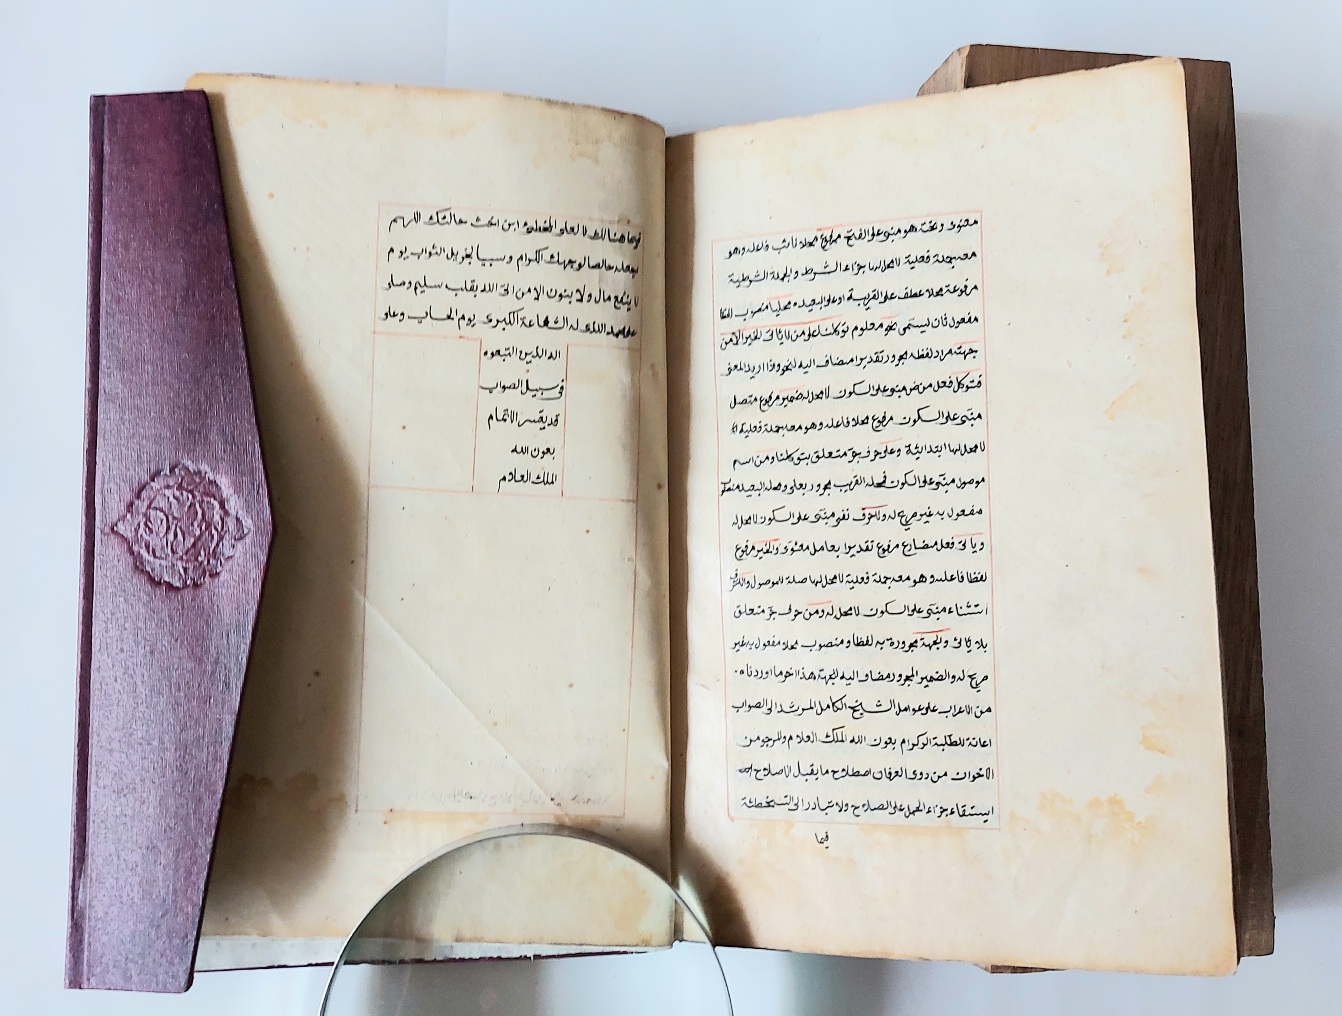 معنوى وتحته هو مبنى على الفتح مرفوع محلا نائب فاعله وهو
معه جملة فعلية لا محل لها جزاء الشرط والجملة الشرطية
مرفوعة محلا عطف على القريبة او على البعيدة محليا منصوب لفظا
مفعول ثان ليسمى نحو معلوم توكلنا على من لا يأتى الخير الا من
جهته مراد لفظه مجرور تقديرا مضاف اليه لنحو واذا اريد المعنى
فتوكل فعل من ض مبنى على السكون لا محل له ضمير مرفوع متصل
مبنى على السكون مرفوع محلا فاعله وهو معه جملة فعلية
لا محل لها ابتدائية وعلى حرف جر متعلق بتوكلنا ومن اسم
موصول مبنى على السكون فمحله القريب مجرور بعلى ومحله البعيد منصوب
مفعول به غير صريح له ولا حرف نفى مبنى على السكون لا محل له
ويأتى فعل مضارع مرفوع تقديرا بعامل معنوى والخير مرفوع
لفظا فاعله وهو معه جملة فعلية لا محل لها صلة للموصول والا حرف
استثناء مبنى على السكون لا محل له ومن حرف جر متعلق
بلا يأتى وجهة مجرورة به لفظا ومنصوب محلا مفعول به غير
صريح له والضمير المجرور مضاف اليه لجهته هذا اخر ما اوردناه
من الاعراب على عوامل الشيخ الكامل المرشد الى الصواب
اعانة للطلبة الكرام بعون الله الملك العلام والمرجو من
الاخوان من ذوى العرفان اصطلاح ما يقبل الاصلاح
استبقاء جزاء الحمل على الصلاح ولا تبادر الى التخطئة
فيما
فيما هنالك لا لعلو المخطئ ابن اخت خالتك اللهم
اجعله خالصا لوجهك الكرام وسببا لجزيل الثواب يوم
لا ينفع مال ولا بنون الا من اتى الله بقلب سليم وصل
على محمد الذى له الشفاعة الكبرى يوم الحساب وعلى
اله الذين اتبعوه
فى سبيل الصواب
قد يقسر الاتمام
بعون الله
الملك العلام